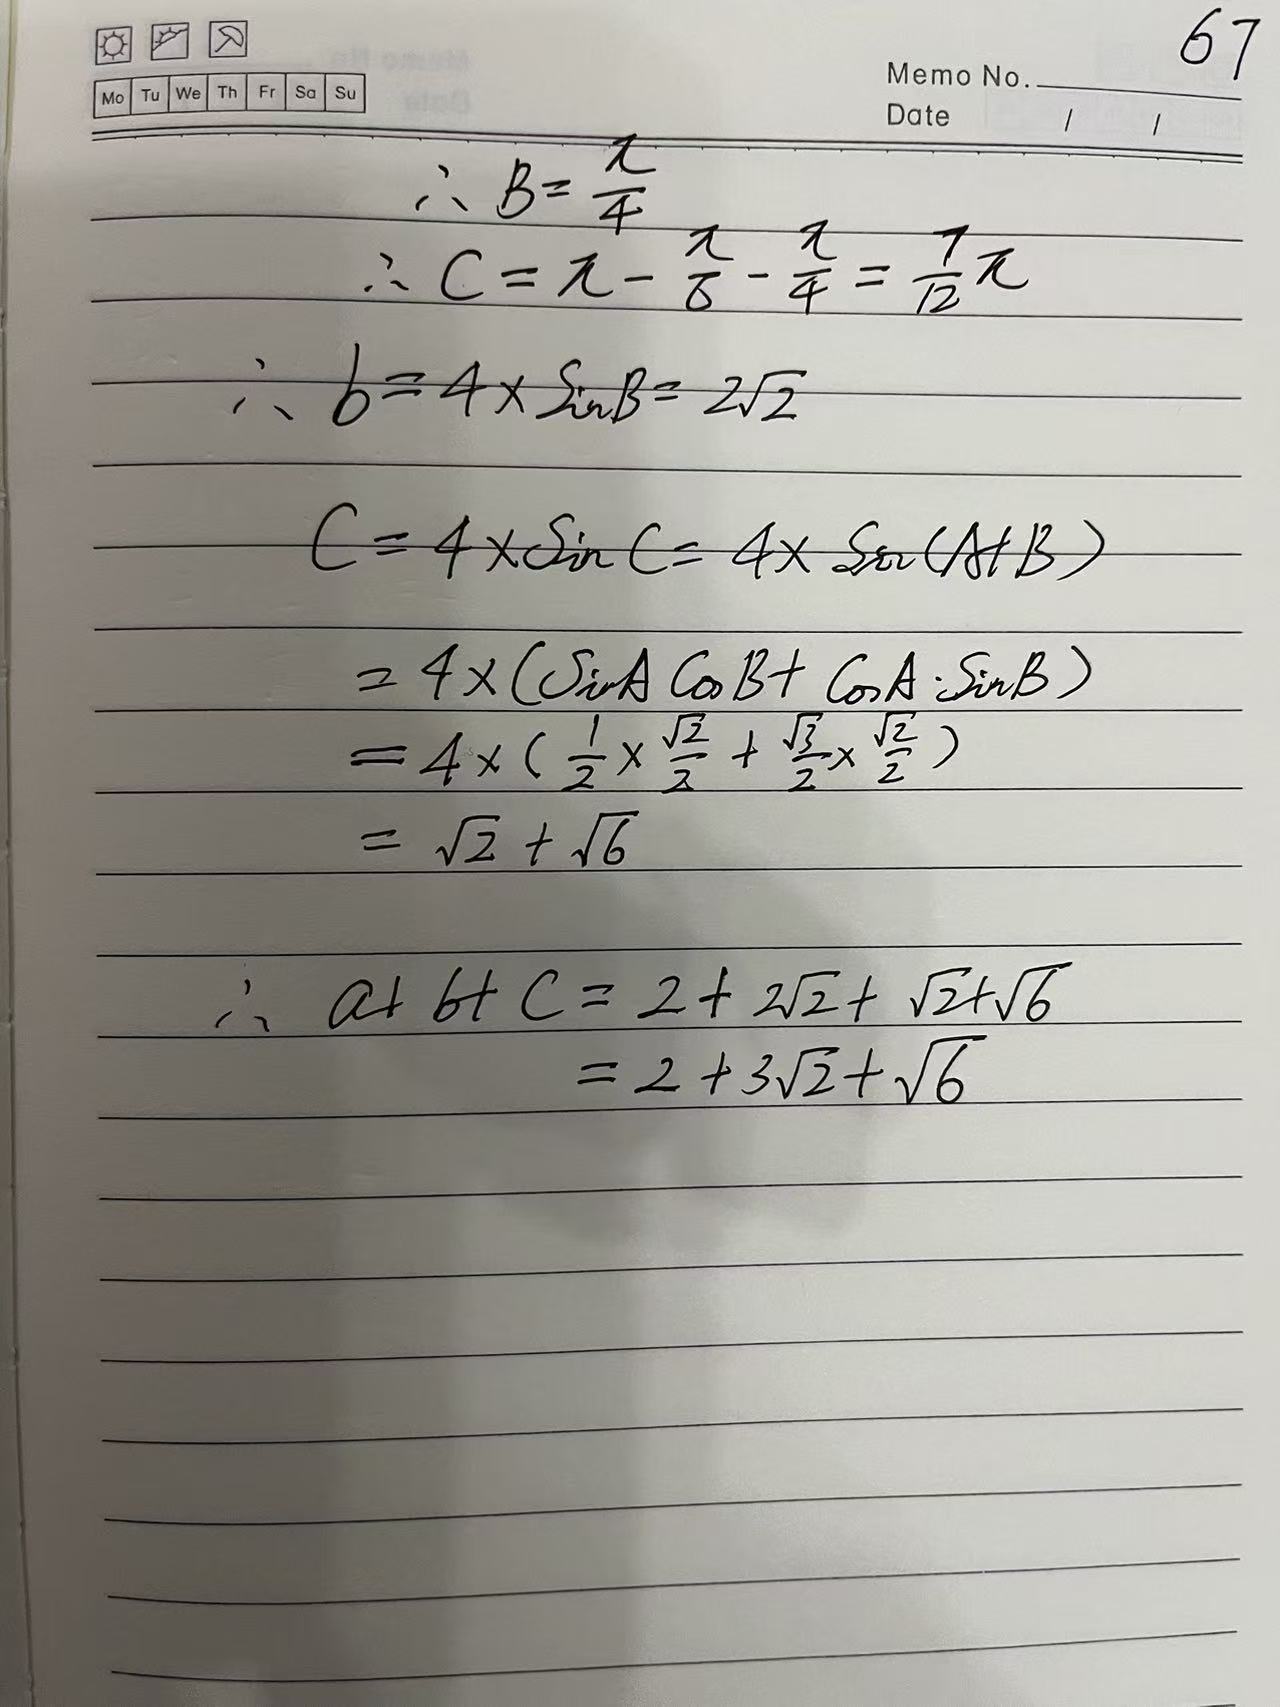 67
Memo No.
Mo Tu We Th Fr Sa Su
Date / /
∴ B = π/4
∴ C = π - π/6 - π/4 = 7/12 π
∴ b = 4 × sinB = 2√2
C = 4 × sin C = 4 × sin(A+B)
= 4 × (sinA cosB + cosA · sinB)
= 4 × (1/2 × √2/2 + √3/2 × √2/2)
= √2 + √6
∴ a + b + C = 2 + 2√2 + √2 + √6
= 2 + 3√2 + √6